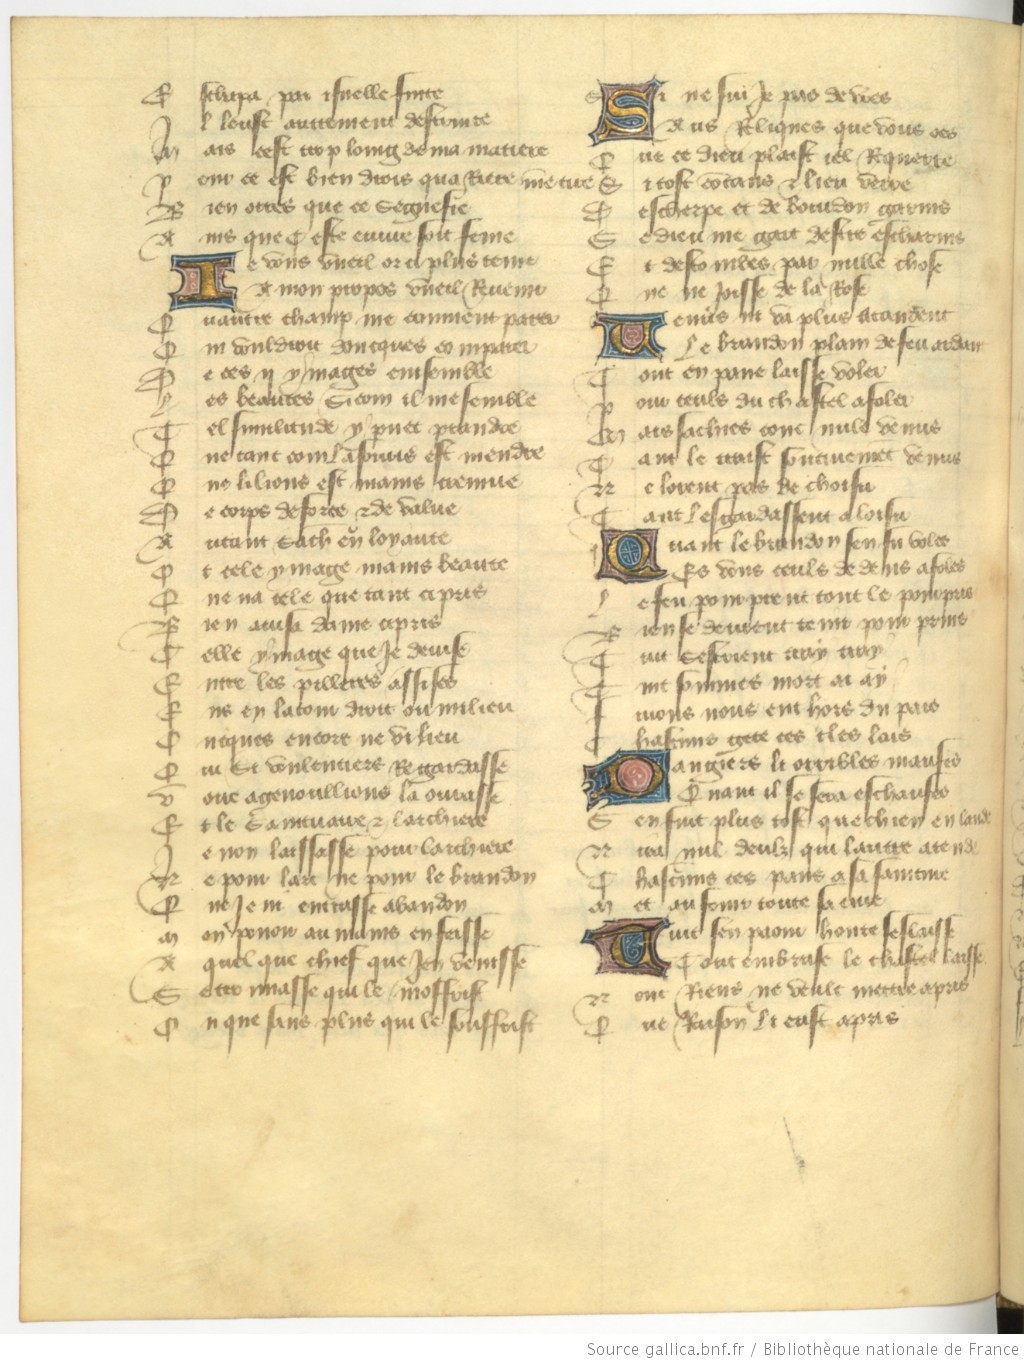 E schapa par isnelle fuite
I l leust autrement destruite
M ais cest trop loing de ma matiere
P our ce est bien drois qua Riere me tue
B ien orres que ce Segnefie
A ins que ceste euure soit finie
I e vous vueil or ci plus tenir
A mon propos vueil Reuenir
Q uautre champ me conuient parer
Q ui vouldroit doncques comparer
D e ces ij ymages ensemble
L es beautes Si com il me semble
T el similitude y puet prandre
Q ue tant com la souris est mendre
Q ue li lions est mains cremue
D e corps de force et de value
A utant Sachies en loyaute
O t cele ymage mains beaute
Q ue na cele que tant ci pris
B ien auisa dame cipris
C elle ymage que Je deuise
E ntre les pilleres assise
E ns en la tour droit ou milieu
O ncques encore ne vi lieu
Q ui Si voulentiers Regardasse
V oire agenoullions la ourasse
E t le Saintuaire et larchiere
J e non laissasse pour larchiere
N e pour larc ne pour le brandon
Q ue Je ni entrasse abandon
M on pouoir au mains en feisse
A quelque chief que Jen venisse
S e trouuasse qui le moffrist
O u que sans plus qui le souffrist
Si ne sui Je pas de voes
A us Reliques que vous oes
Q ue ce dieu plaist iel Requerre
S i tost con tans et lieu verre
D escherpe et de bourdon garnis
S e dieu me gart destre escharnis
E t destombes par nulle chose
Q ue ne Joisse de la Rose
Venus ni va plus atandent
Le brandon plain de feu ardant
T out en pane laisse voler
P our ceuls du chastel afoler
M ais sachies conc nule venus
T ant le traist soutiuement venus
N e lorent pas de choisir
T ant lesgardassent a loisir
Quant le brandon sen fu voles
Es vous ceuls dedens afoles
L e feu pourprent tout le pourpris
B ien se deurent tenir pour prins
T uit sescrient tray tray
T uit sommes mort ai ay
F uions nous ent hors du pais
C hascuns gete ces cles lais
Dangiers li orribles maufes
Quant il se senti eschaufes
S en fuit plus tost que chien en lande
N i a nul deulz qui lautre atende
C hascuns ces pans a sa sainture
M et au fouir toute sa cure
Fuit sen paour honte seslaisse
Tout embrase le chastel laisse
N onc Riens ne voult mettre a pris
Q ue Raison li eust apris